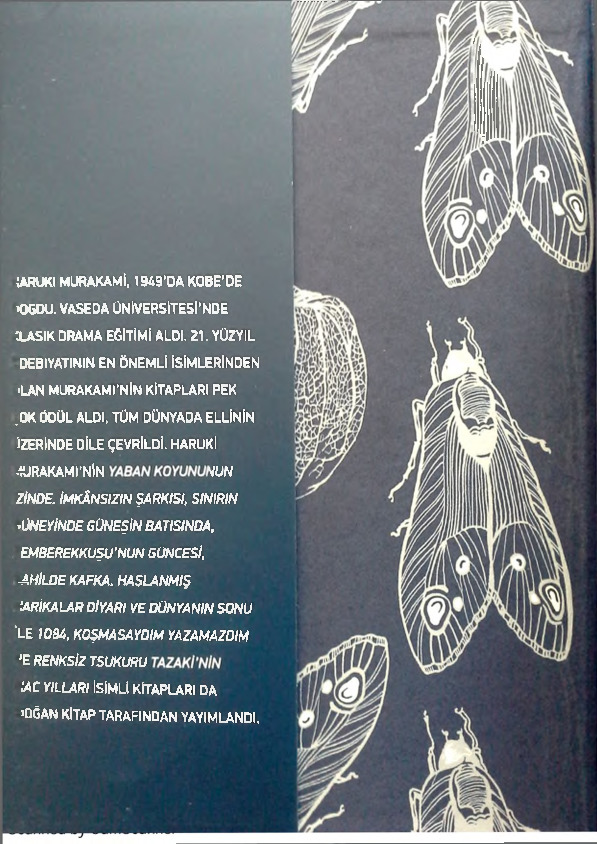 ARUKI MURAKAMİ, 1949'DA KOBE'DE
OĞDU. VASEDA ÜNİVERSİTESİ'NDE
LASIK DRAMA EĞİTİMİ ALDI. 21. YÜZYIL
DEBİYATININ EN ÖNEMLİ İSİMLERİNDEN
LAN MURAKAMI'NİN KİTAPLARI PEK
OK ÖDÜL ALDI, TÜM DÜNYADA ELLİNİN
ZERİNDE DİLE ÇEVRİLDİ. HARUKİ
URAKAMI'NİN YABAN KOYUNUNUN
ZİNDE, İMKÂNSIZIN ŞARKISI, SINIRIN
ÜNEYİNDE GÜNEŞİN BATISINDA,
EMBEREKKUŞU'NUN GÜNCESİ,
AHİLDE KAFKA, HAŞLANMIŞ
ARİKALAR DİYARI VE DÜNYANIN SONU
LE 1Q84, KOŞMASAYDIM YAZAMAZDIM
E RENKSİZ TSUKURU TAZAKİ'NİN
AC YILLARI İSİMLİ KİTAPLARI DA
OĞAN KİTAP TARAFINDAN YAYIMLANDI.